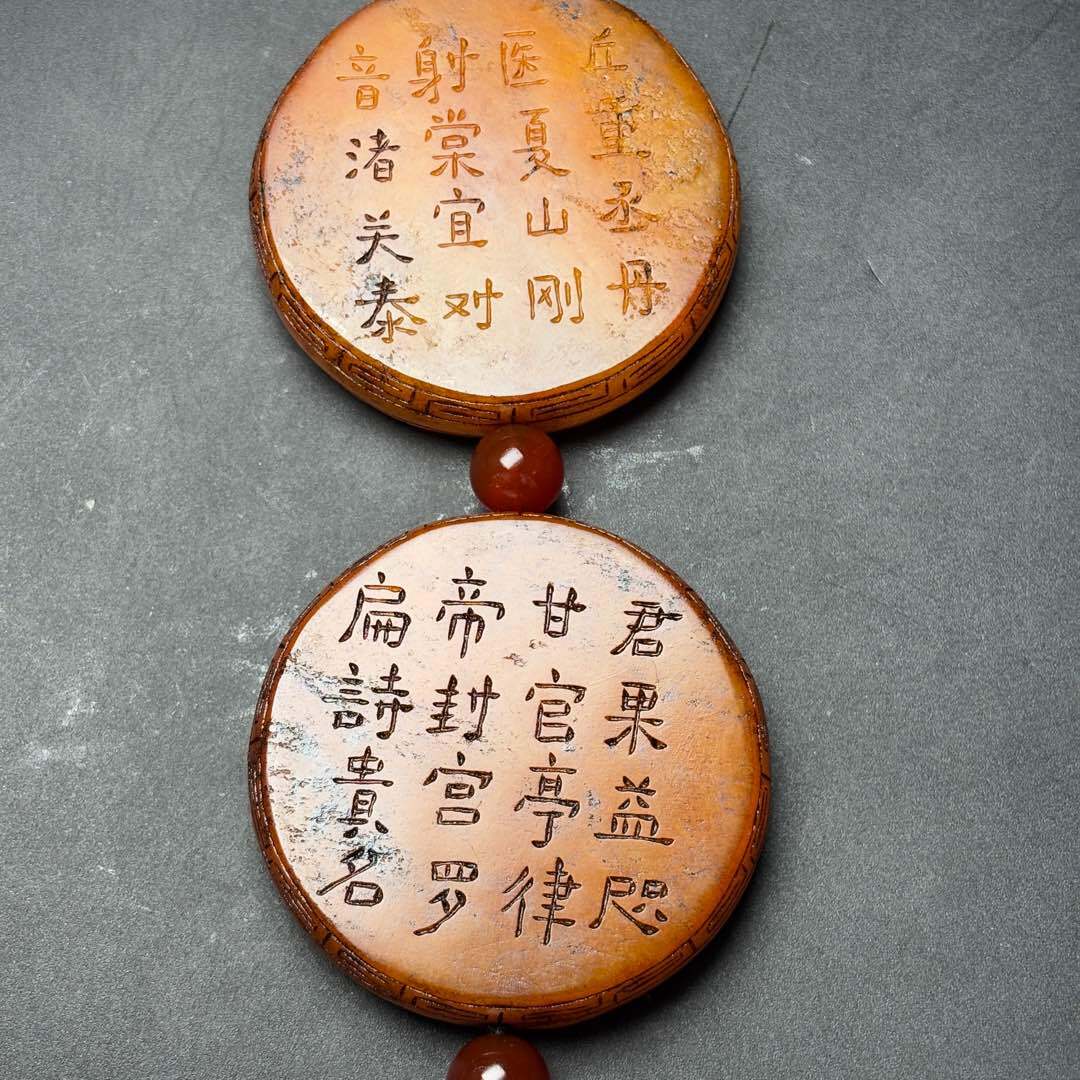 丘丞
医夏山刚
射棠宜对
音渚关泰
君果益咫
甘官亭律
帝封宫罗
扁詩貴名